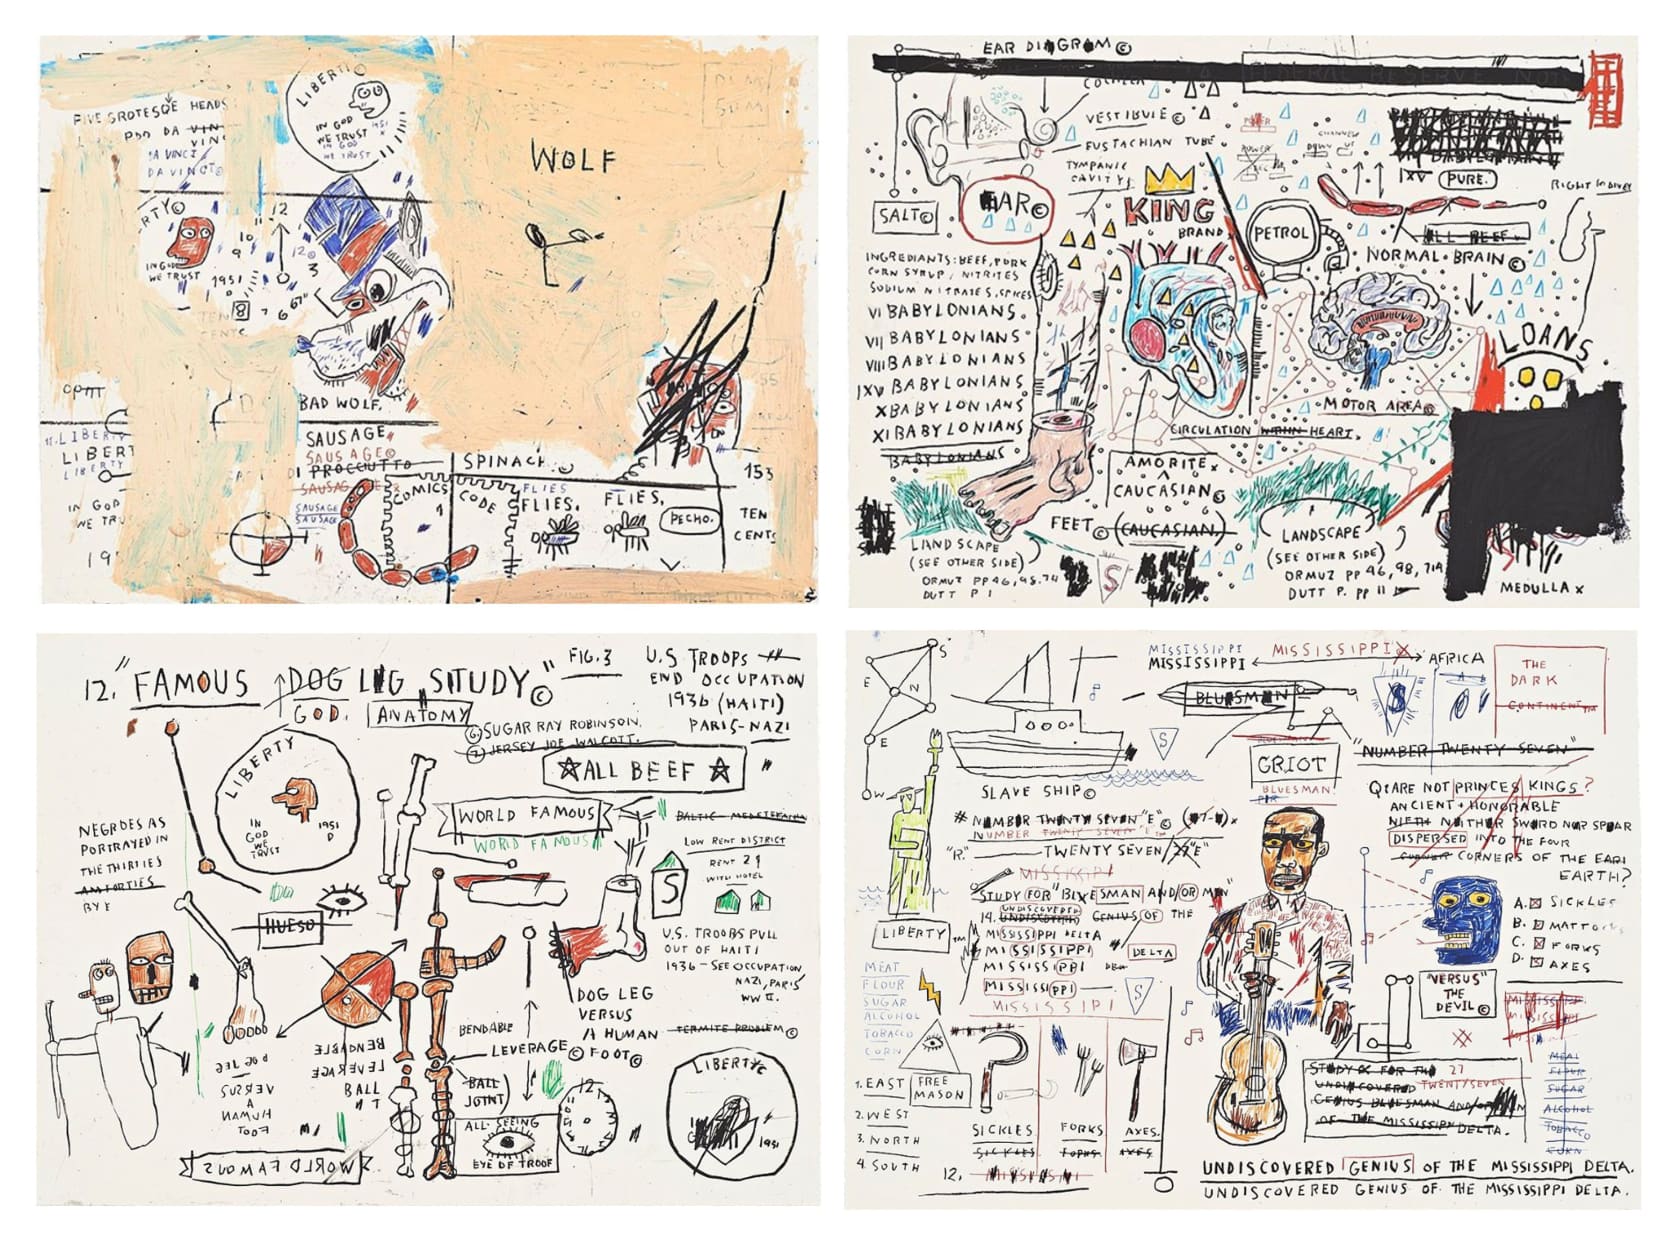 FIVE GROTESQUE HEADS
DA VINCI
DA VINCI©
LIBERTY
IN GOD
WE TRUST
1951
IN GOD
WE TRUST
WOLF
RTY©
IN GOD
WE TRUST
12
11
10
9
12©
3
1951
8
7
6
6"
TEN
CENTS
BAD WOLF.
OPM
11.LIBERTY
LIBERT
LIBERTY
IN GOD
WE TRU
19
SAUSAGE
SAUSAGE©
PROCCUTTO
SAUSAGE
SAUSAGE
SAUSAGE
COMICS
CODE
1
SPINACH.©
FLIES
FLIES.
FLIES.
PECHO.
153
TEN
CENTS
EAR DIAGRAM©
COCHLEA
FEDERAL RESERVE NOTE
VESTIBULE©
EUSTACHIAN TUBE
TYMPANIC
CAVITY
SALT©
EAR©
KING
BRAND
POWER
POWER
CHANNEL
DOWN UP
IXV PURE.
RIGHT IN DIVEY
PETROL
ALL BEEF
NORMAL BRAIN©
INGREDIANTS: BEEF, PORK
CORN SYRUP, NITRITES
SODIUM NITRATES, SPICES
VI BABYLONIANS
VII BABYLONIANS
VIII BABYLONIANS
IXV BABYLONIANS
X BABYLONIANS
XI BABYLONIANS
BABYLONIANS
LOANS
MOTOR AREA©
CIRCULATION WITHIN HEART.
AMORITE x
CAUCASIAN©
FEET© (CAUCASIAN.)
LANDSCAPE
(SEE OTHER SIDE)
ORMUZ PP 46, 98, 714
DUTT P 1
S
LANDSCAPE
(SEE OTHER SIDE)
ORMUZ PP 46, 98, 714
DUTT P. PP 11
MEDULLA x
12. "FAMOUS DOG LEG STUDY"©
GOD.
ANATOMY
FIG. 3
U.S TROOPS
END OCCUPATION
1936 (HAITI)
PARIS-NAZI
SUGAR RAY ROBINSON.
JERSEY JOE WALCOTT.
☆ALL BEEF☆
LIBERTY
IN
GOD
WE
TRUST
1951
D
WORLD FAMOUS
WORLD FAMOUS
BALTIC - MEDETERANIA
LOW RENT DISTRICT
RENT 29
WITH HOTEL
S
NEGROES AS
PORTRAYED IN
THE THIRTIES
AM FORTIES
BYE
HUESO
U.S. TROOBS PULL
OUT OF HAITI
1936 - SEE OCCUPATION
NAZI, PARIS
WW II.
DOG LEG
VERSUS
A HUMAN
FOOT©
TERMITE PROBLEM©
BENDABLE
LEVERAGE©
BALL
JOINT
BENDABLE
LEVERAGE
BALL
DOG LEG
VERSUS
A
HUMAN
FOOT
ALL-SEEING
EYE OF TROOF
12
LIBERTY©
1951
WORLD FAMOUS
S
E
N
E
W
MISSISSIPPI
MISSISSIPPI
MISSISSIPPI
AFRICA
THE
DARK
CONTINENT™
BLUESMAN
S
S
GRIOT
BLUESMAN
"NUMBER TWENTY SEVEN"
SLAVE SHIP©
# NUMBER TWENTY SEVEN "E"©
NUMBER TWENTY SEVEN "E"
"R."
TWENTY SEVEN "E"
MISSISSIPPI
STUDY FOR "BLUESMAN AND/OR MAN"
UNDISCOVERED
14. UNDISCOVERED GENIUS OF THE
MISSISSIPPI DELTA
MISSISSIPPI
DELTA
MISSISSIPPI
MISSISSIPPI
MISSISSIPPI
Q: ARE NOT PRINCES KINGS?
ANCIENT + HONORABLE
NIETH NEITHER SWORD NOR SPEAR
DISPERSED INTO THE FOUR
CORNER CORNERS OF THE EARI
EARTH?
A. SICKLES
B. MATTOCKS
C. FORKS
D. AXES
LIBERTY™
MEAT
FLOUR
SUGAR
ALCOHOL
TOBACCO
CORN
S
"VERSUS"
THE
DEVIL©
MISSISSIPPI
MISSISSIPPI
1. EAST
FREE
MASON
2. WEST
3. NORTH
4. SOUTH
SICKLES
SICKLES
FORKS
FORKS
AXES.
AXES
12.
MISSISSIPPI
STUDY FOR THE 27
UNDISCOVERED TWENTY SEVEN
GENIUS BLUESMAN AND/OR MAN
OF THE MISSISSIPPI DELTA.
MEAL
FLOUR
SUGAR
ALCOHOL
TOBACCO
CORN
UNDISCOVERED GENIUS OF THE MISSISSIPPI DELTA.
UNDISCOVERED GENIUS OF THE MISSISSIPPI DELTA.